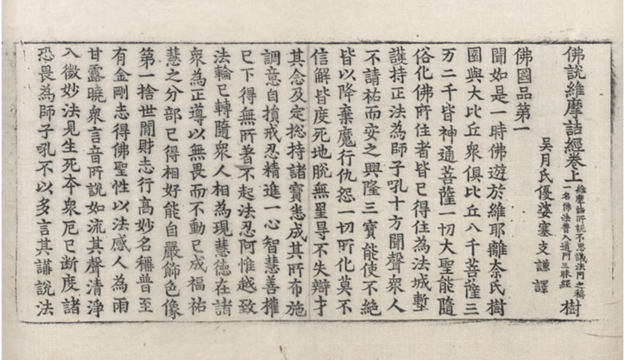 佛說維摩詰經卷上 維摩詰所說不思議法門之稱 一名佛法普入道門三昧經 樹
吳月氏優婆塞支謙譯
佛國品第一
聞如是一時佛遊於維耶離奈氏樹
園與大比丘衆俱比丘八千菩薩三
万二千皆神通菩薩一切大聖能隨
俗化佛所住者皆已得住為法城塹
護持正法為師子吼十方聞聲衆人
不請祐而安之興隆三寶能使不絕
皆以降棄魔行仇怨一切所化莫不
信解皆度死地脫無罣㝵不失辯才
其念及定揔持諸寶悉成其所布施
調意自損戒忍精進一心智慧善權
已下得無所著不起法忍阿惟越致
法輪已轉隨衆人相為現慧德在諸
衆為正導以無畏而不動已成福祐
慧之分部已得相好能自嚴飾色像
第一捨世間財志行高妙名稱普至
有金剛志得佛聖性以法感人為雨
甘露曉衆言音所說如流其聲清淨
入微妙法見生死本衆厄已斷度諸
恐畏為師子吼不以多言其講說法